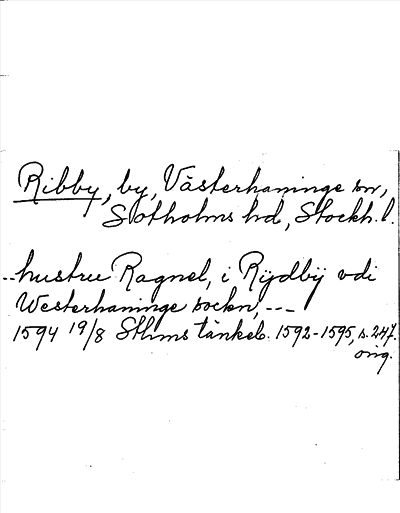 Ribby, by, Västerhaninge sn,
Sotholms hd, Stockh. l.
--hustru Ragnel, i Rijdbij vdi
Westerhaninge sockn, ---
1594 19/8 Sthms tänkeb. 1592-1595, s. 247.
orig.